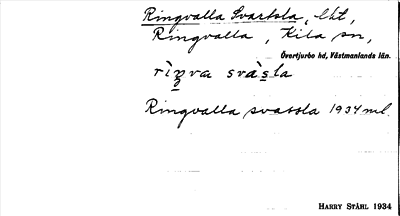 Ringvalla Svartsla, lht,
Ringvalla, Kila sn,
Övertjurbo hd, Västmanlands län.
Ringvalla svassla 1934 ml.
HARRY STÅHL 1934